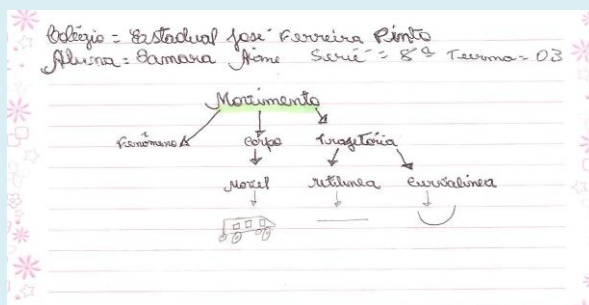 Colégio = Estadual José Ferreira Pinto
Aluna = Samara Aline Serie = 8ª Turma = 03
Movimento
Fenômeno Corpo Trajetória
Movel retilinea Curvalinea